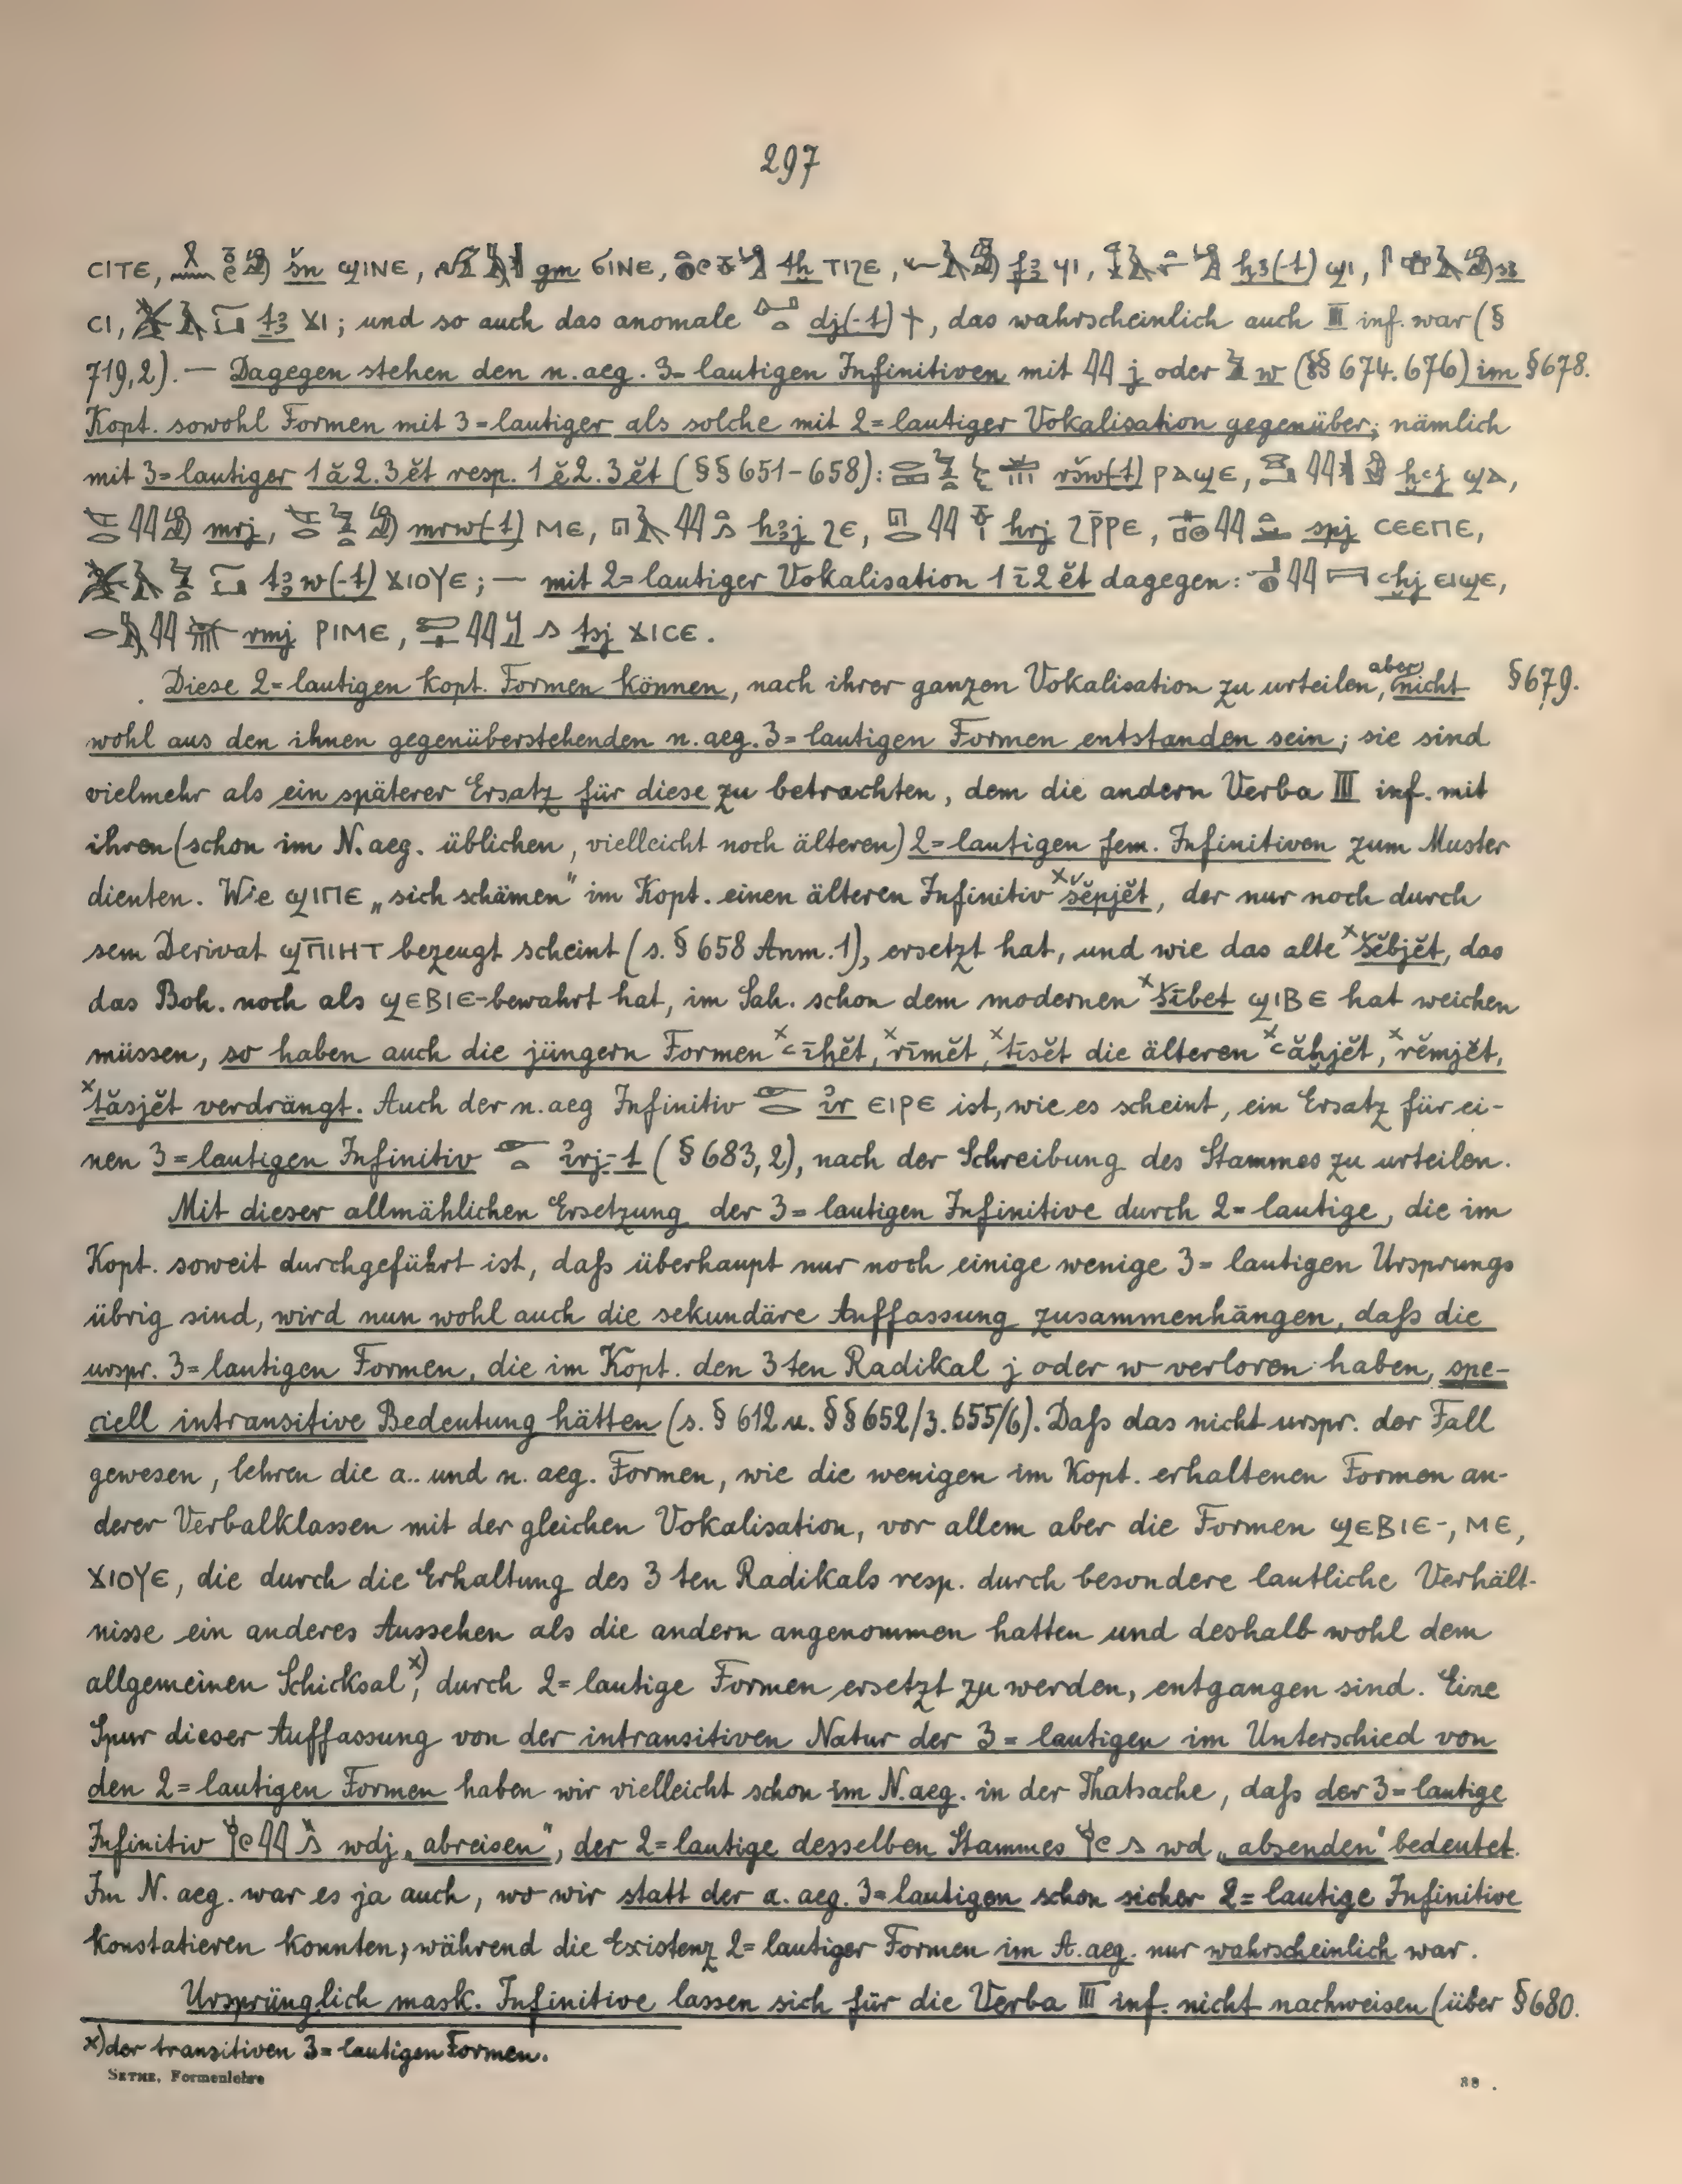 297
ⲤⲒⲦⲈ, šn ϢⲒⲚⲈ, gm ϬⲒⲚⲈ, tḫ ⲦⲒϨⲈ, fꜣ ϤⲒ, ḫꜣ(-t) ϢⲒ, sꜣ
ⲤⲒ, ṯꜣ ϪⲒ; und so auch das anomale dj(-t) ϯ, das wahrscheinlich auch III inf. war (§
719,2). — Dagegen stehen den n.aeg. 3=lautigen Infinitiven mit 𓇋𓇋 j oder w (§§ 674. 676) im §678.
Kopt. sowohl Formen mit 3=lautiger als solche mit 2=lautiger Vokalisation gegenüber; nämlich
mit 3=lautiger 1ă2.3ĕt resp. 1ĕ2.3ĕt (§§ 651-658): ršw(-t) ⲢⲀϢⲈ, ḫꜥj ϢⲀ,
mrj, mrw(-t) ⲘⲈ, hꜣj ϨⲈ, hrj ϨⲢ̄ⲢⲈ, spj ⲤⲈⲈⲠⲈ,
ṯꜣw(-t) ϪⲒⲞⲨⲈ; — mit 2=lautiger Vokalisation 1ī2ĕt dagegen: ꜥḫj ⲈⲒϢⲈ,
rmj ⲢⲒⲘⲈ, ṯsj ϪⲒⲤⲈ.
Diese 2=lautigen kopt. Formen können, nach ihrer ganzen Vokalisation zu urteilen, aber nicht §679.
wohl aus den ihnen gegenüberstehenden n.aeg. 3=lautigen Formen entstanden sein; sie sind
vielmehr als ein späterer Ersatz für diese zu betrachten, dem die andern Verba III inf. mit
ihren (schon im N.aeg. üblichen, vielleicht noch älteren) 2=lautigen fem. Infinitiven zum Muster
dienten. Wie ϢⲒⲠⲈ „sich schämen“ im Kopt. einen älteren Infinitiv ˣšĕpjĕt, der nur noch durch
sein Derivat ϢⲠ̄ⲒⲎⲦ bezeugt scheint (s. § 658 Anm. 1), ersetzt hat, und wie das alte ˣšĕbjĕt, das
das Boh. noch als ϢⲈⲂⲒⲈ- bewahrt hat, im Sah. schon dem modernen ˣšībet ϢⲒⲂⲈ hat weichen
müssen, so haben auch die jüngern Formen ˣꜥīḫĕt, ˣrīmĕt, ˣṯīsĕt die älteren ˣꜥăḫjĕt, ˣrĕmjĕt,
ˣṯăsjĕt verdrängt. Auch der n.aeg Infinitiv 𓁹 ir ⲈⲒⲢⲈ ist, wie es scheint, ein Ersatz für ei-
nen 3=lautigen Infinitiv irj-t (§ 683,2), nach der Schreibung des Stammes zu urteilen.
Mit dieser allmählichen Ersetzung der 3=lautigen Infinitive durch 2=lautige, die im
Kopt. soweit durchgeführt ist, daß überhaupt nur noch einige wenige 3=lautigen Ursprungs
übrig sind, wird nun wohl auch die sekundäre Auffassung zusammenhängen, daß die
urspr. 3=lautigen Formen, die im Kopt. den 3ten Radikal j oder w verloren haben, spe-
ciell intransitive Bedeutung hätten (s. § 612 u. §§ 652/3. 655/6). Daß das nicht urspr. der Fall
gewesen, lehren die a.. und n. aeg. Formen, wie die wenigen im Kopt. erhaltenen Formen an-
derer Verbalklassen mit der gleichen Vokalisation, vor allem aber die Formen ϢⲈⲂⲒⲈ-, ⲘⲈ,
ϪⲒⲞⲨⲈ, die durch die Erhaltung des 3ten Radikals resp. durch besondere lautliche Verhält-
nisse ein anderes Aussehen als die andern angenommen hatten und deshalb wohl dem
allgemeinen Schicksal ˣ), durch 2=lautige Formen ersetzt zu werden, entgangen sind. Eine
Spur dieser Auffassung von der intransitiven Natur der 3=lautigen im Unterschied von
den 2=lautigen Formen haben wir vielleicht schon im N.aeg. in der Thatsache, daß der 3=lautige
Infinitiv wdj „abreisen“, der 2=lautige desselben Stammes wd „absenden“ bedeutet.
Im N. aeg. war es ja auch, wo wir statt der a. aeg. 3=lautigen schon sicher 2=lautige Infinitive
konstatieren konnten, während die Existenz 2=lautiger Formen im A.aeg. nur wahrscheinlich war.
Ursprünglich mask. Infinitive lassen sich für die Verba III inf. nicht nachweisen (über §680.
x) der transitiven 3=lautigen Formen.
SETHE, Formenlehre
38 .